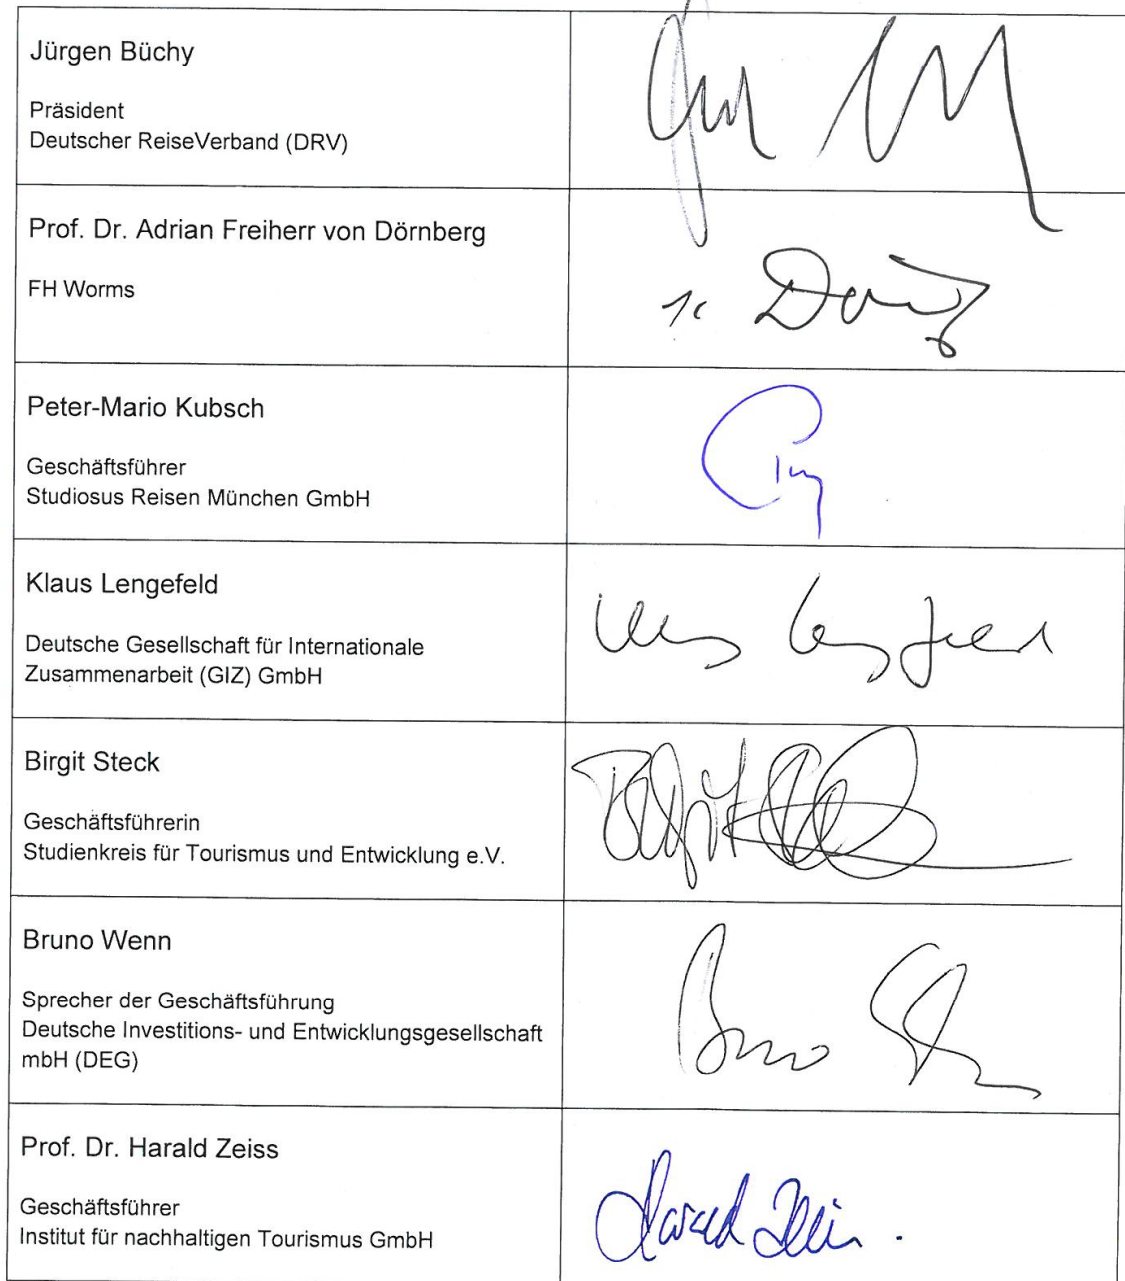 Jürgen Büchy
Präsident
Deutscher ReiseVerband (DRV)
Prof. Dr. Adrian Freiherr von Dörnberg
FH Worms
Peter-Mario Kubsch
Geschäftsführer
Studiosus Reisen München GmbH
Klaus Lengefeld
Deutsche Gesellschaft für Internationale
Zusammenarbeit (GIZ) GmbH
Birgit Steck
Geschäftsführerin
Studienkreis für Tourismus und Entwicklung e.V.
Bruno Wenn
Sprecher der Geschäftsführung
Deutsche Investitions- und Entwicklungsgesellschaft
mbH (DEG)
Bruno
Prof. Dr. Harald Zeiss
Geschäftsführer
Institut für nachhaltigen Tourismus GmbH
Harald Zeiss